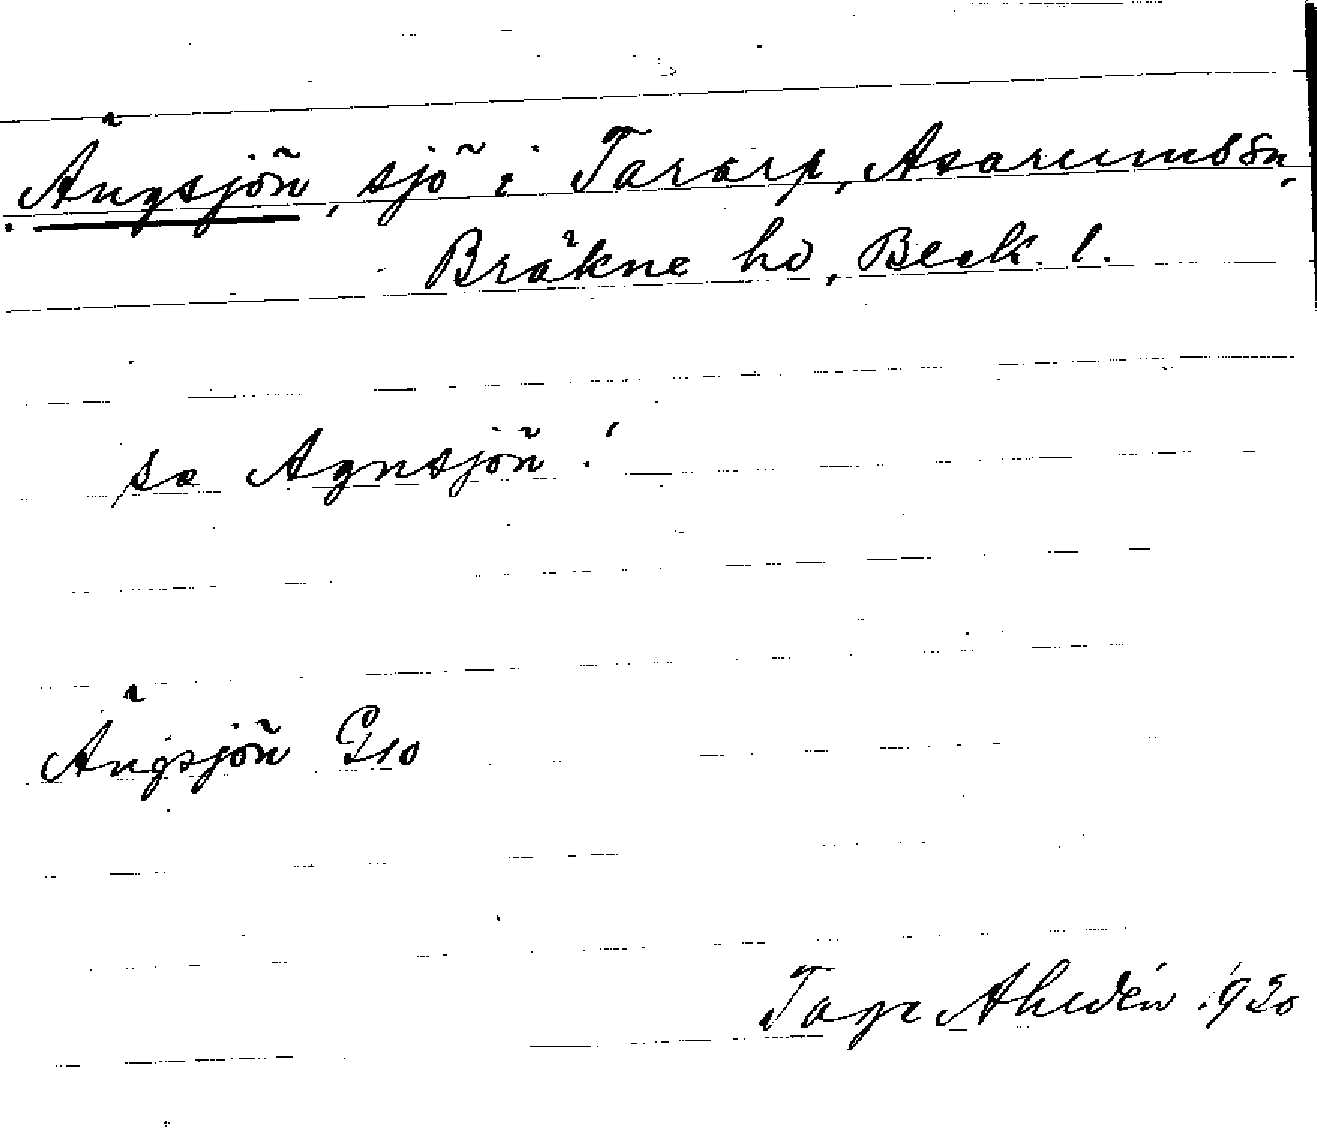 Ängsjön, sjö i Tararp, Asarums sn,
Bräkne hd, Blek. l.
se Agnsjön!
Ängsjön G10
Tage Ahldén 1930